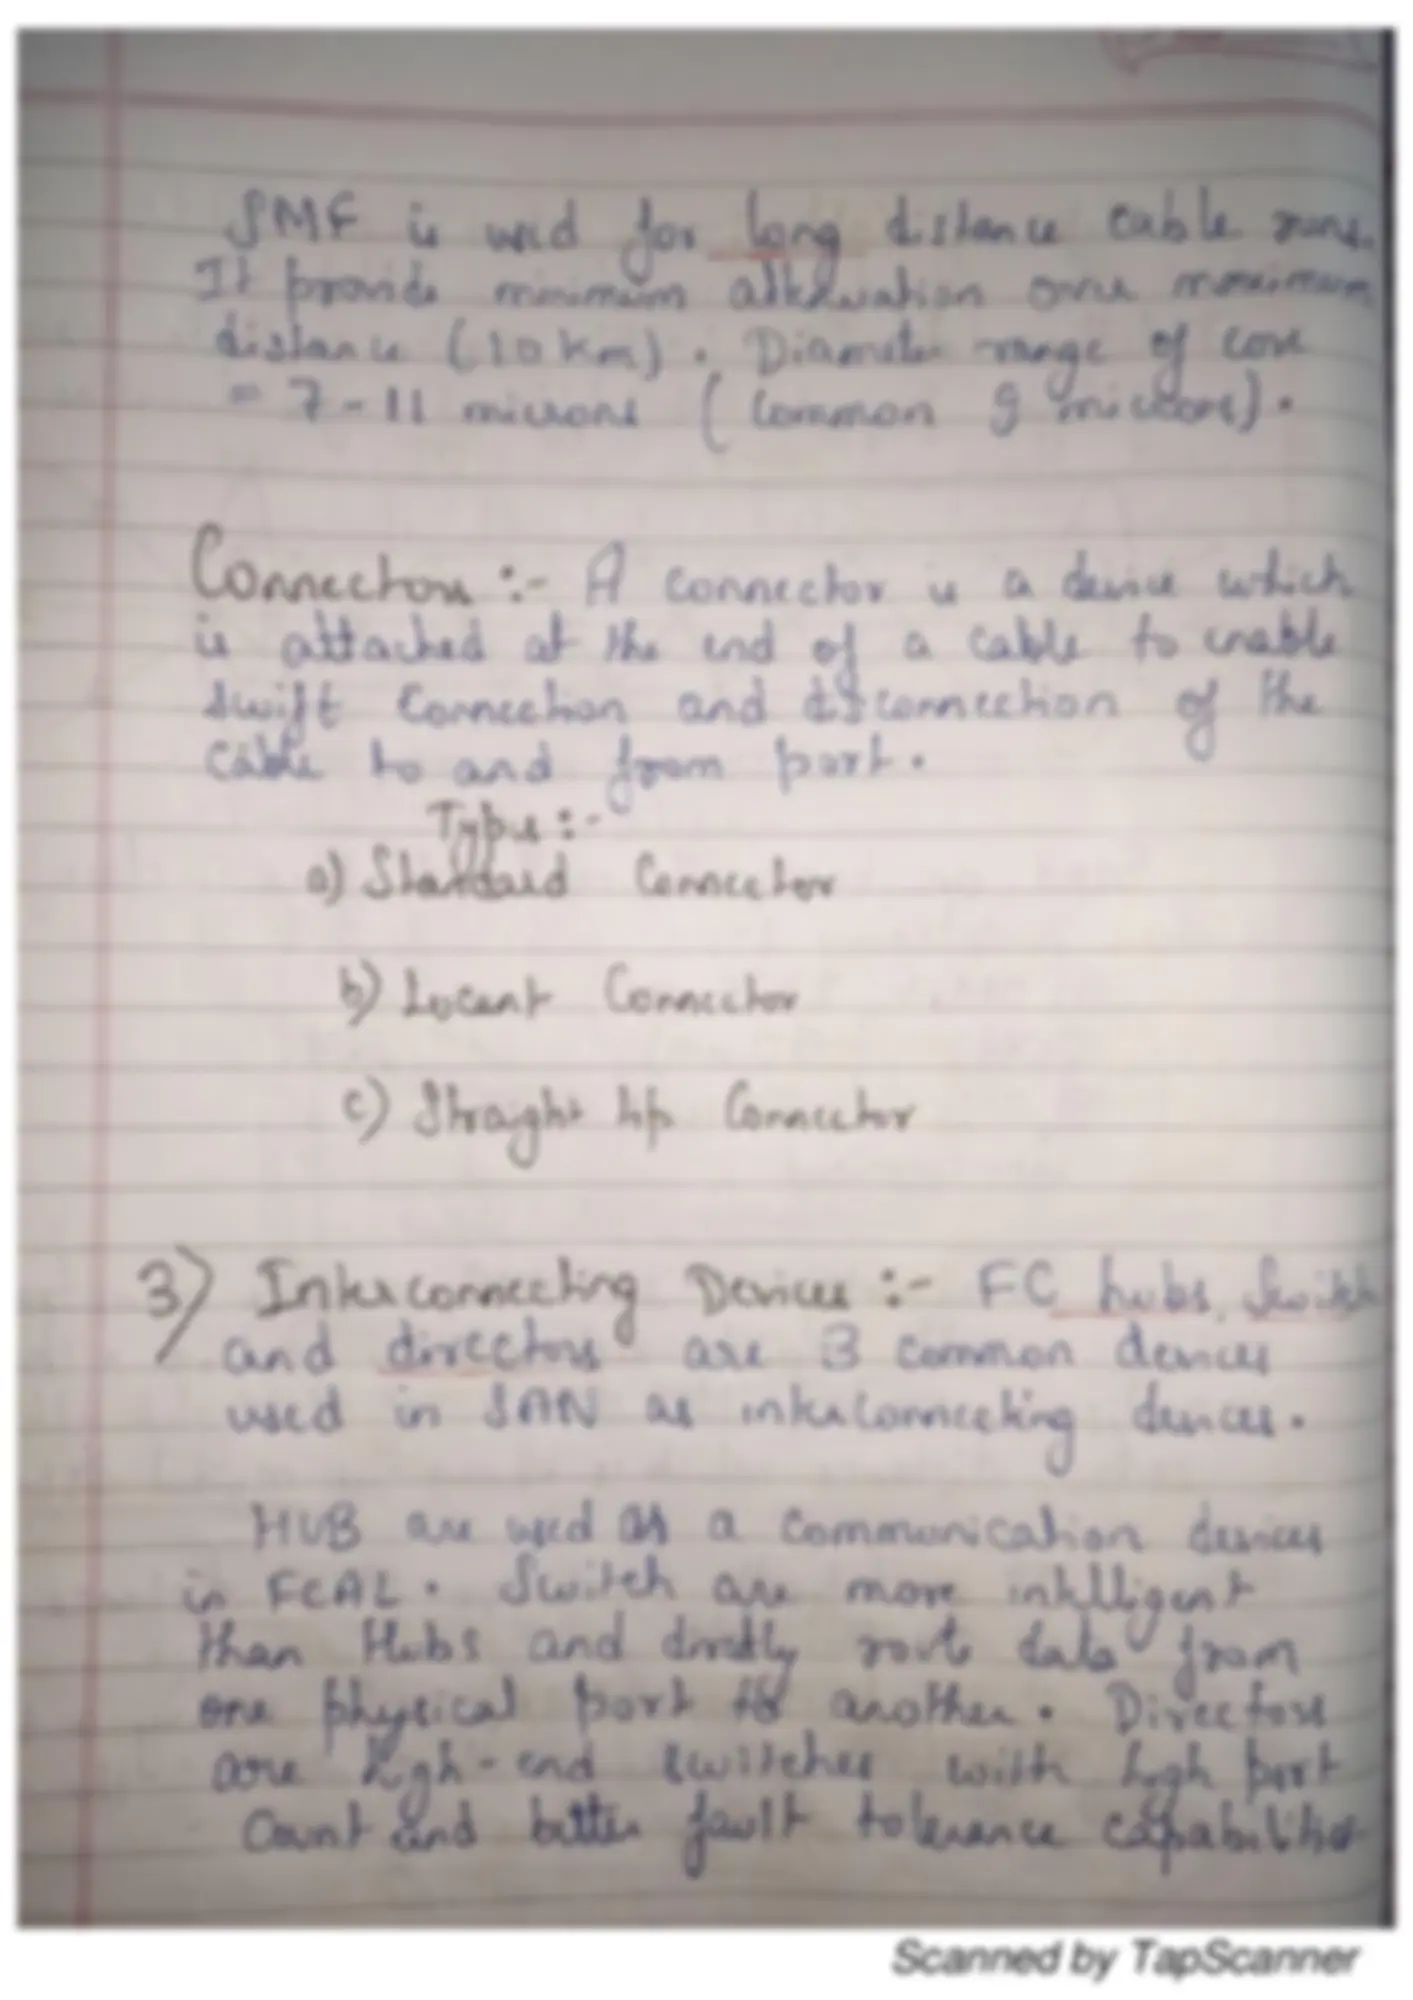 SMF is used for long distance cable runs.
It provide minimum attenuation over maximum
distance (10 km). Diameter range of core
= 7-11 microns (Common 9 microns).
Connectors :- A connector is a device which
is attached at the end of a cable to enable
swift connection and disconnection of the
cable to and from port.
Types :-
a) Standard Connector
b) Lucent Connector
c) Straight tip Connector
3) Interconnecting Devices :- FC hubs, Switch
and directors are 3 common devices
used in SAN as interconnecting devices.
HUB are used as a communication devices
in FCAL. Switch are more intelligent
than Hubs and directly route data from
one physical port to another. Directors
are high-end switches with high port
Count and better fault tolerance capabilities
Scanned by TapScanner